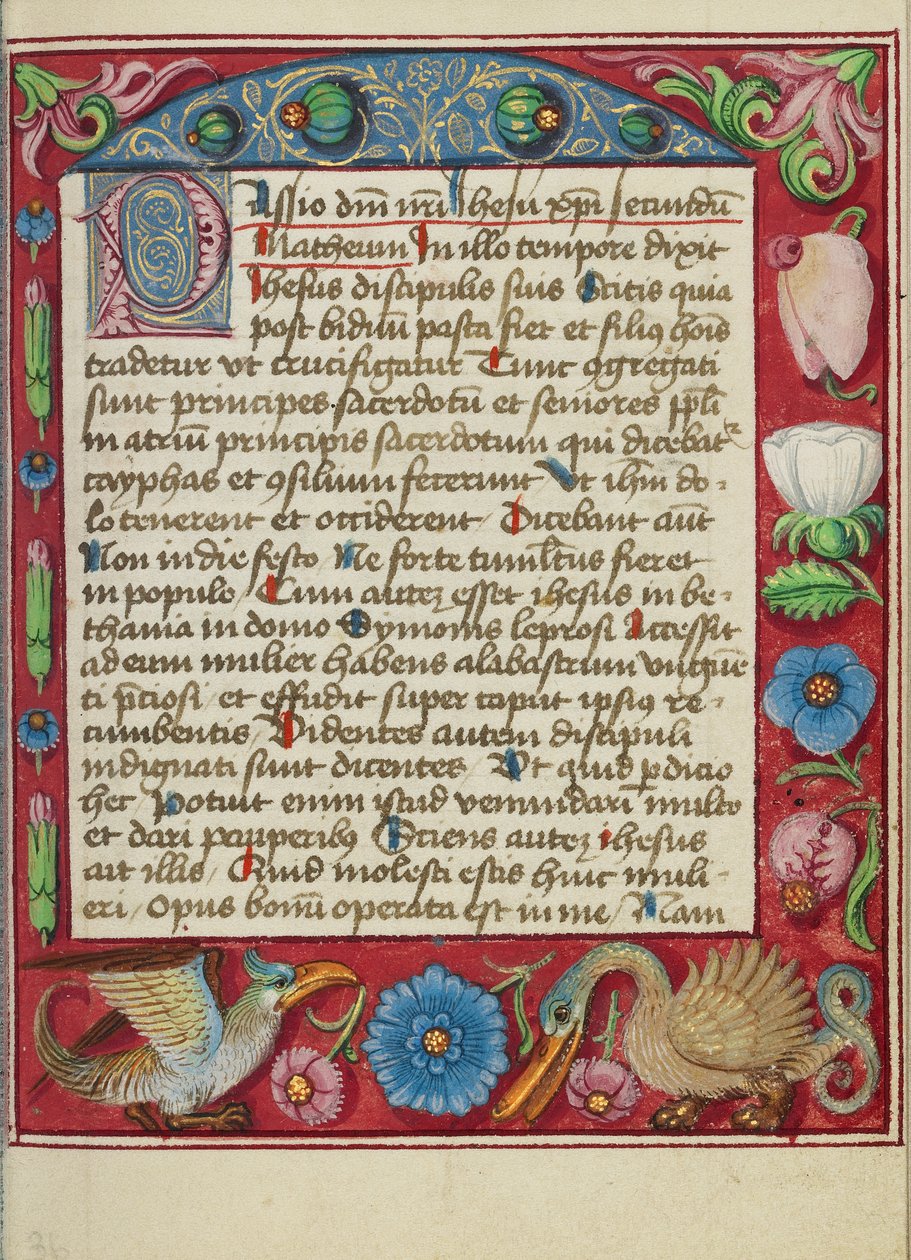 Passio dm̄ nr̄i Jhesu xp̄i secundū
Matheum In illo tempore dixit
Jhesus discipulis suis Scitis quia
post biduū pasca fiet et filiꝯ hōis
tradetur vt crucifigatur Tunc ꝯgregati
sunt principes sacerdotū et seniores ppl̄i
in atriū principis sacerdotum qui dicebat᷑
cayphas et ꝯsilium fecerunt Vt ih̄m do-
lo tenerent et occiderent Dicebant aūt
Non in die festo Ne forte tuml̄tus fieret
in populo Cum autez esset ihesus in be-
thania in domo Symonis leprosi Accessit
ad eum mulier habens alabastrum vnguē-
ti p̄ciosi et effudit super caput ipsiꝯ re-
cumbentis Videntes autem discipuli
indignati sunt dicentes Vt quid ꝑdicio
hec potuit enim istud venundari multo
et dari pauperibꝯ Sciens autez ihesus
ait illis / Quid molesti estis huic muli-
eri / opus bonū operata est in me / Nam
36